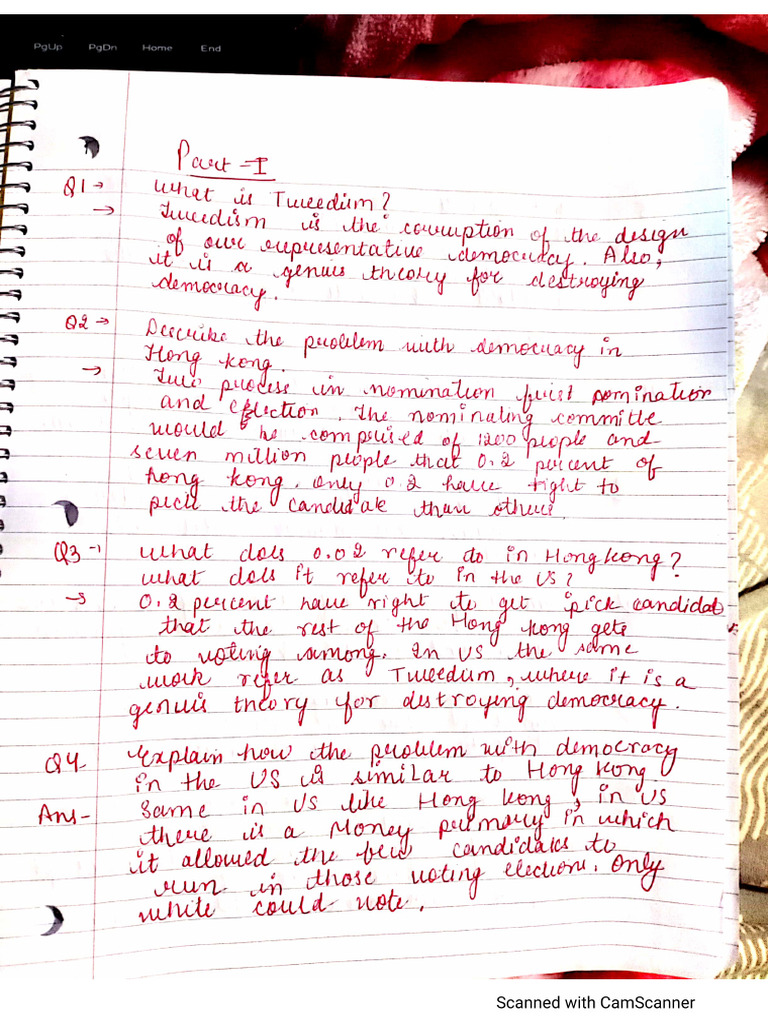 PgUp PgDn Home End
Part - I
Q1 → What is Tweedism?
→ Tweedism is the corruption of the design
of our representative democracy. Also,
it is a genuis theory for destroying
democracy.
Q2 → Describe the problem with democracy in
Hong kong.
→ Two process in nomination first nomination
and election. The nominating committe
would be comprised of 1200 people and
seven million people that 0.2 percent of
hong kong. only 0.2 have right to
pick the candidate than others.
Q3 → What does 0.02 refer to in Hongkong?
what does it refer to in the US?
→ 0.2 percent have right to get pick candidat
that the rest of the Hong kong gets
to voting among. In US the same
work refer as Tweedism, where it is a
genuis theory for destroying democracy.
Q4 - Explain how the problem with democracy
in the US is similar to Hong kong
Ans - Same in US like Hong kong, in US
there is a Money primary in which
it allowed the few candidates to
run in those voting election. Only
white could vote.
Scanned with CamScanner